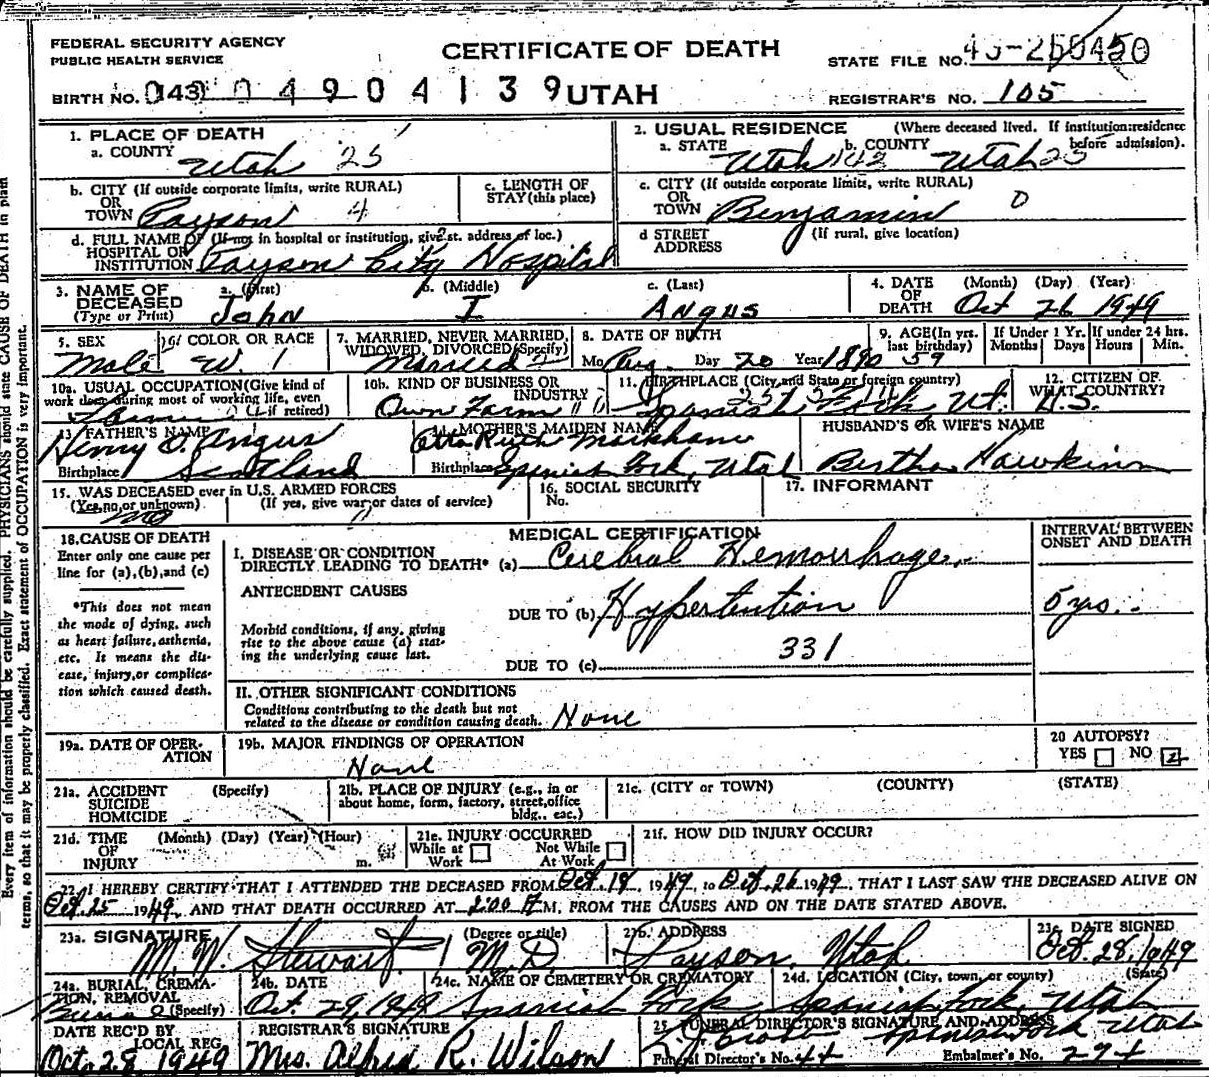 FEDERAL SECURITY AGENCY
PUBLIC HEALTH SERVICE
CERTIFICATE OF DEATH
STATE FILE NO.
BIRTH NO. 143 0 4 9 0 4 1 3 9 UTAH
REGISTRAR'S NO. 105
1. PLACE OF DEATH
a. COUNTY
Utah 25
2. USUAL RESIDENCE (Where deceased lived. If institution:residence before admission).
a. STATE b. COUNTY
Utah 142 Utah 25
b. CITY (If outside corporate limits, write RURAL)
OR
TOWN Payson 4
c. LENGTH OF
STAY (this place)
c. CITY (If outside corporate limits, write RURAL)
OR
TOWN Benjamin 0
d. FULL NAME OF (If not in hospital or institution, give st. address or loc.)
HOSPITAL OR
INSTITUTION Payson City Hospital
d STREET
ADDRESS (If rural, give location)
3. NAME OF
DECEASED
(Type or Print)
a. (First) b. (Middle) c. (Last)
John I Angus
4. DATE
OF
DEATH
(Month) (Day) (Year)
Oct 26 1949
5. SEX
Male
6. COLOR OR RACE
W. 1
7. MARRIED, NEVER MARRIED,
WIDOWED, DIVORCED (Specify)
Married 2
8. DATE OF BIRTH
Mo. Aug. Day 20 Year 1890
9. AGE (In yrs.
last birthday)
59
If Under 1 Yr.
Months Days
If under 24 hrs.
Hours Min.
10a. USUAL OCCUPATION (Give kind of
work done during most of working life, even
if retired)
Farmer
10b. KIND OF BUSINESS OR
INDUSTRY
Own Farm
11. BIRTHPLACE (City and State or foreign country)
Spanish Fork Ut.
12. CITIZEN OF
WHAT COUNTRY?
U.S.
13. FATHER'S NAME
Henry O. Angus
Birthplace Scotland
14. MOTHER'S MAIDEN NAME
Ruth Markham
Birthplace Spanish Fork, Utah
HUSBAND'S OR WIFE'S NAME
Bertha Hawkins
15. WAS DECEASED ever in U.S. ARMED FORCES
(Yes, no, or unknown) (If yes, give war or dates of service)
no
16. SOCIAL SECURITY
No.
17. INFORMANT
18. CAUSE OF DEATH
Enter only one cause per
line for (a), (b), and (c)
*This does not mean
the mode of dying, such
as heart failure, asthenia,
etc. It means the dis-
ease, injury, or complica-
tion which caused death.
MEDICAL CERTIFICATION
INTERVAL BETWEEN
ONSET AND DEATH
I. DISEASE OR CONDITION
DIRECTLY LEADING TO DEATH* (a) Cerebral Hemorrhage
ANTECEDENT CAUSES
DUE TO (b) Hypertention 5 yrs.
Morbid conditions, if any, giving
rise to the above cause (a) stat-
ing the underlying cause last.
331
DUE TO (c)
II. OTHER SIGNIFICANT CONDITIONS
Conditions contributing to the death but not
related to the disease or condition causing death. None
19a. DATE OF OPER-
ATION
19b. MAJOR FINDINGS OF OPERATION
None
20 AUTOPSY?
YES NO
21a. ACCIDENT (Specify)
SUICIDE
HOMICIDE
21b. PLACE OF INJURY (e.g., in or
about home, form, factory, street, office
bldg., eac.)
21c. (CITY OR TOWN) (COUNTY) (STATE)
21d. TIME (Month) (Day) (Year) (Hour)
OF
INJURY m.
21e. INJURY OCCURRED
While at Not While
Work At Work
21f. HOW DID INJURY OCCUR?
22. I HEREBY CERTIFY THAT I ATTENDED THE DECEASED FROM Oct. 18, 1949, to Oct. 26 1949, THAT I LAST SAW THE DECEASED ALIVE ON
Oct. 25 1949, AND THAT DEATH OCCURRED AT 2:00 M, FROM THE CAUSES AND ON THE DATE STATED ABOVE.
23a. SIGNATURE (Degree or title)
M. W. Stewart M.D.
23b. ADDRESS
Payson, Utah
23c. DATE SIGNED
Oct. 28, 1949
24a. BURIAL, CREMA-
TION, REMOVAL
(Specify)
Burial
24b. DATE
Oct. 29, 1949
24c. NAME OF CEMETERY OR CREMATORY
Spanish Fork
24d. LOCATION (City, town, or county) (State)
Spanish Fork, Utah
DATE REC'D BY
LOCAL REG.
Oct. 28 1949
REGISTRAR'S SIGNATURE
Mrs. Alfred R. Wilson
25. FUNERAL DIRECTOR'S SIGNATURE AND ADDRESS
Spanish Fork Utah
Funeral Director's No. Embalmer's No.
Every item of information should be carefully supplied. PHYSICIANS should state CAUSE OF DEATH in plain
terms, so that it may be properly classified. Exact statement of OCCUPATION is very important.